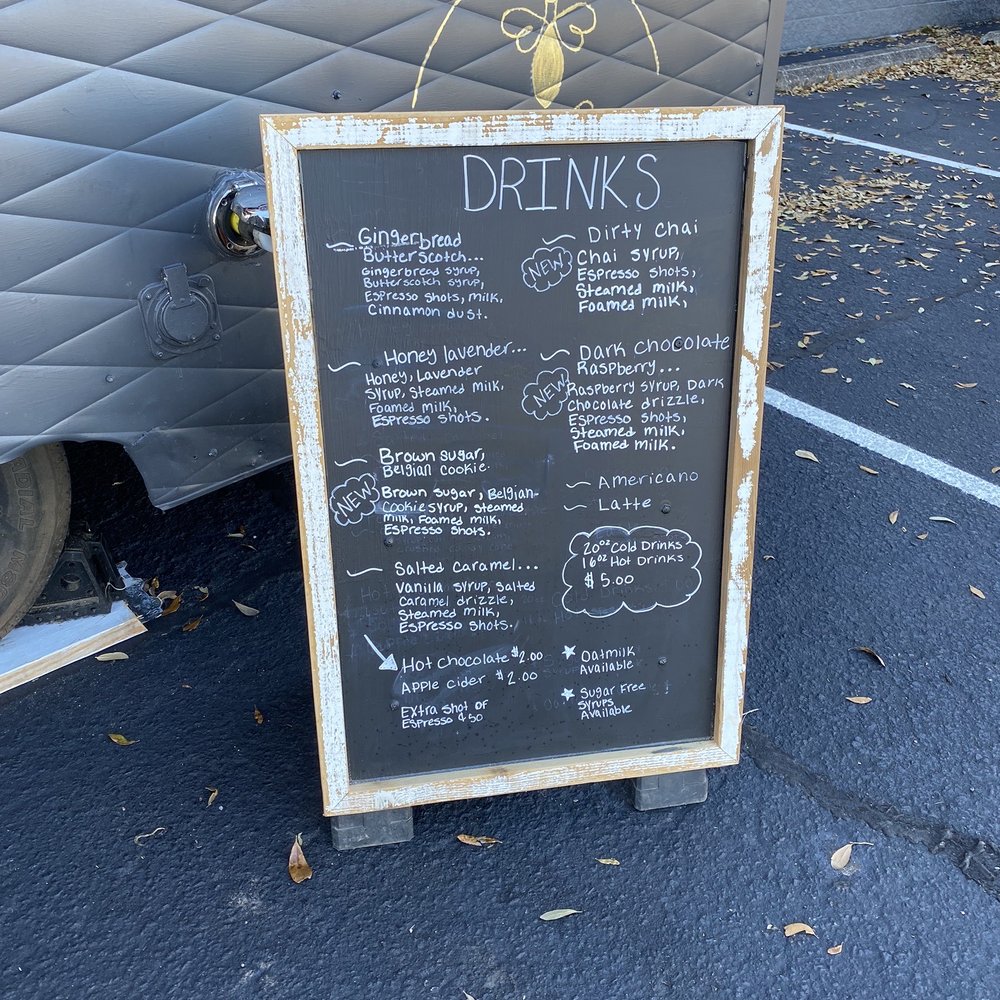 DRINKS
Gingerbread
Butterscotch...
Gingerbread syrup,
Butterscotch syrup,
Espresso shots, milk,
Cinnamon dust.
Honey lavender...
Honey, Lavender
syrup, steamed milk,
Foamed milk,
Espresso shots.
Brown sugar,
Belgian cookie.
NEW
Brown sugar, Belgian-
cookie syrup, steamed
milk, Foamed milk,
Espresso shots.
Salted Caramel...
Vanilla syrup, salted
Caramel drizzle,
Steamed milk,
Espresso shots.
Hot chocolate $2.00
Apple cider $2.00
Extra shot of
Espresso $.50
Dirty Chai
NEW
Chai syrup,
Espresso shots,
Steamed milk,
Foamed milk,
Dark Chocolate
Raspberry...
NEW
Raspberry syrup, Dark
Chocolate drizzle,
Espresso shots,
Steamed milk,
Foamed milk.
Americano
Latte
20oz Cold Drinks
16oz Hot Drinks
$5.00
Oatmilk
Available
Sugar Free
syrups
Available